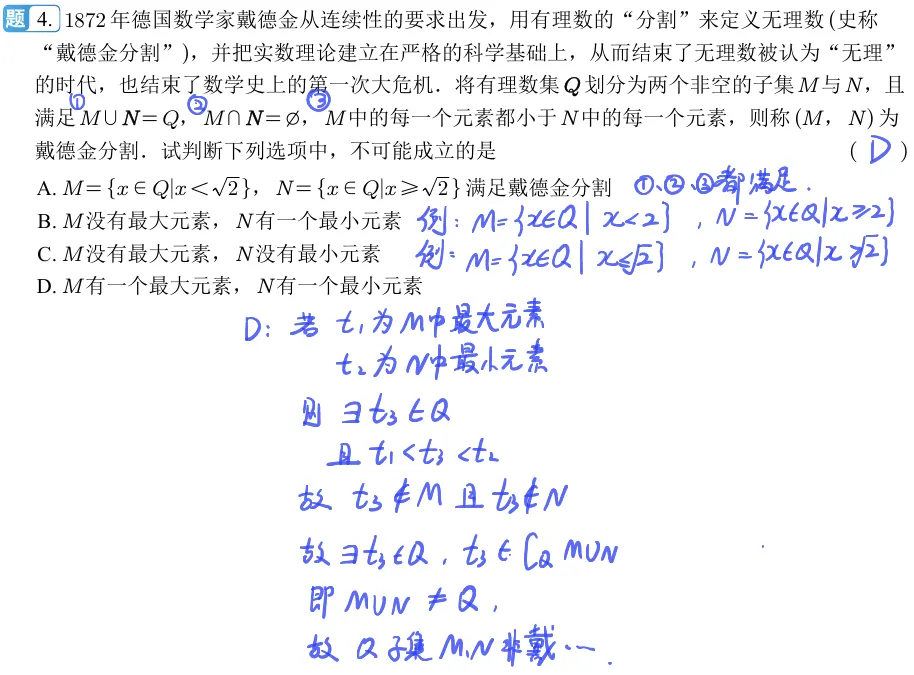 题 4. 1872年德国数学家戴德金从连续性的要求出发，用有理数的“分割”来定义无理数(史称
“戴德金分割”)，并把实数理论建立在严格的科学基础上，从而结束了无理数被认为“无理”
的时代，也结束了数学史上的第一次大危机．将有理数集Q划分为两个非空的子集M与N，且
① ② ③
满足M∪N=Q，M∩N=∅，M中的每一个元素都小于N中的每一个元素，则称(M，N)为
戴德金分割．试判断下列选项中，不可能成立的是 ( D )
A. M={x∈Q|x<√2}，N={x∈Q|x≥√2}满足戴德金分割 ①、②、③都满足.
B. M没有最大元素，N有一个最小元素 例: M={x∈Q|x<2}，N={x∈Q|x≥2}
C. M没有最大元素，N没有最小元素 例: M={x∈Q|x≤√2}，N={x∈Q|x≥√2}
D. M有一个最大元素，N有一个最小元素
D: 若 t₁为M中最大元素
t₂为N中最小元素
则 ∃t₃∈Q
且 t₁<t₃<t₂
故 t₃∉M 且 t₃∉N
故∃t₃∈Q，t₃∈∁Q M∪N
即 M∪N≠Q，
故 Q子集M、N非戴….